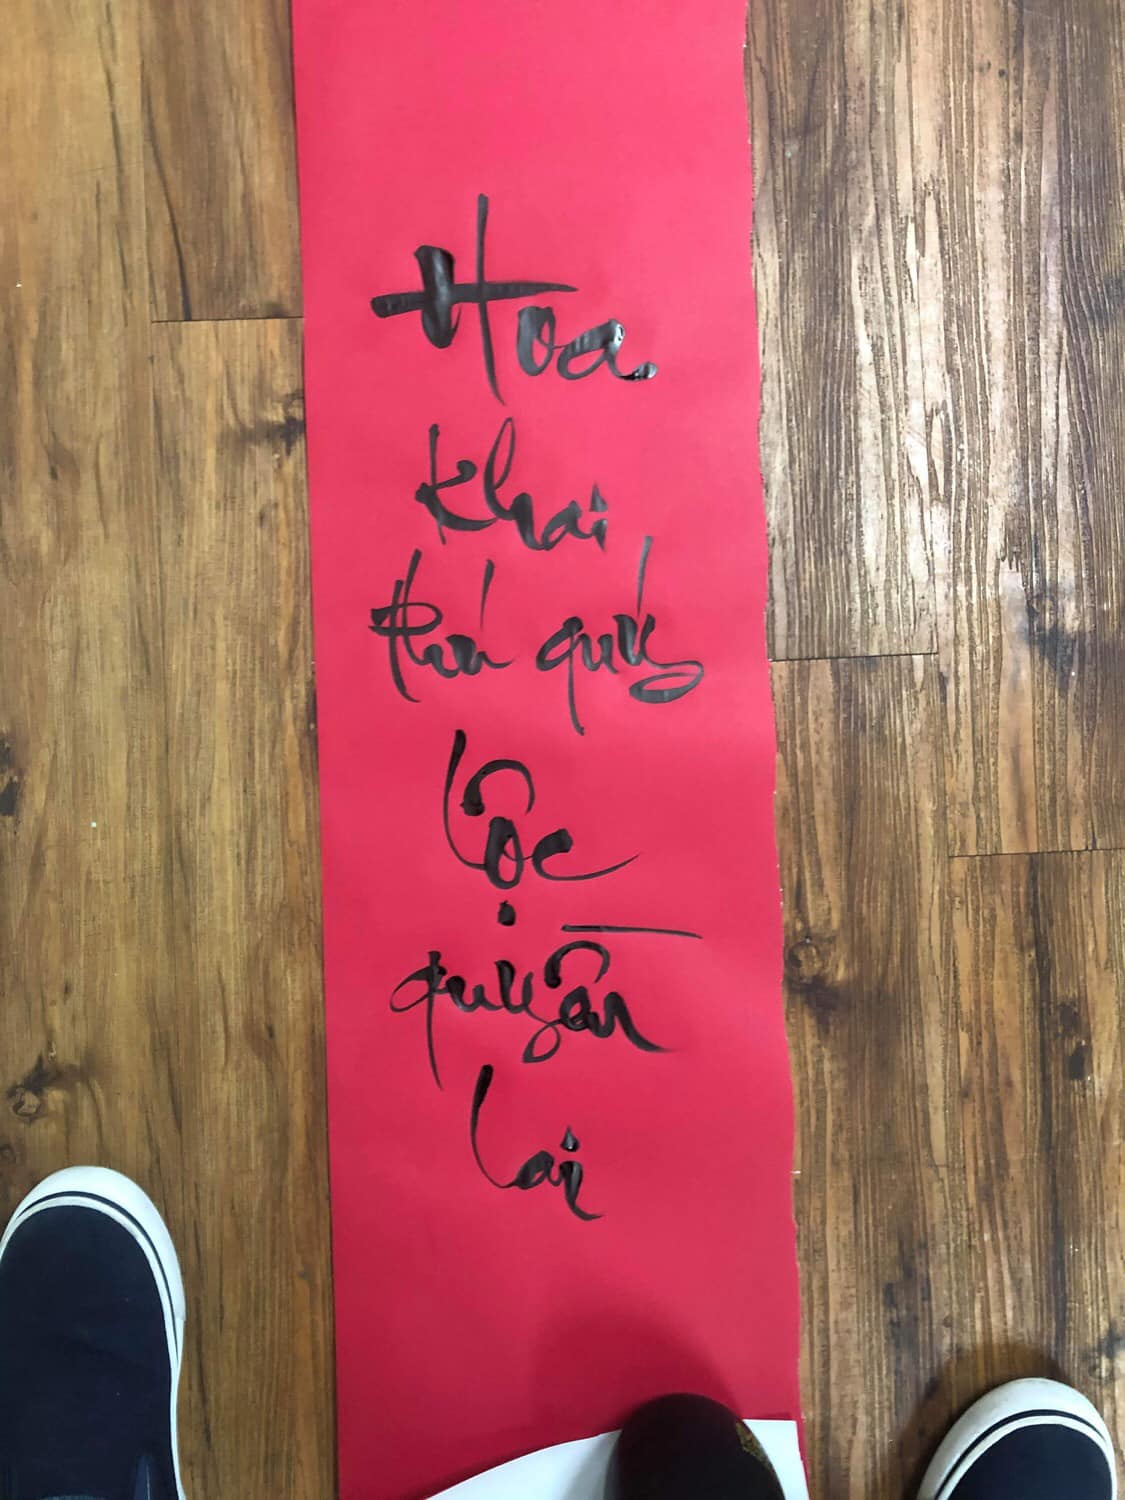 Hoa
khai
phú quý
Lộc
quyền
lai